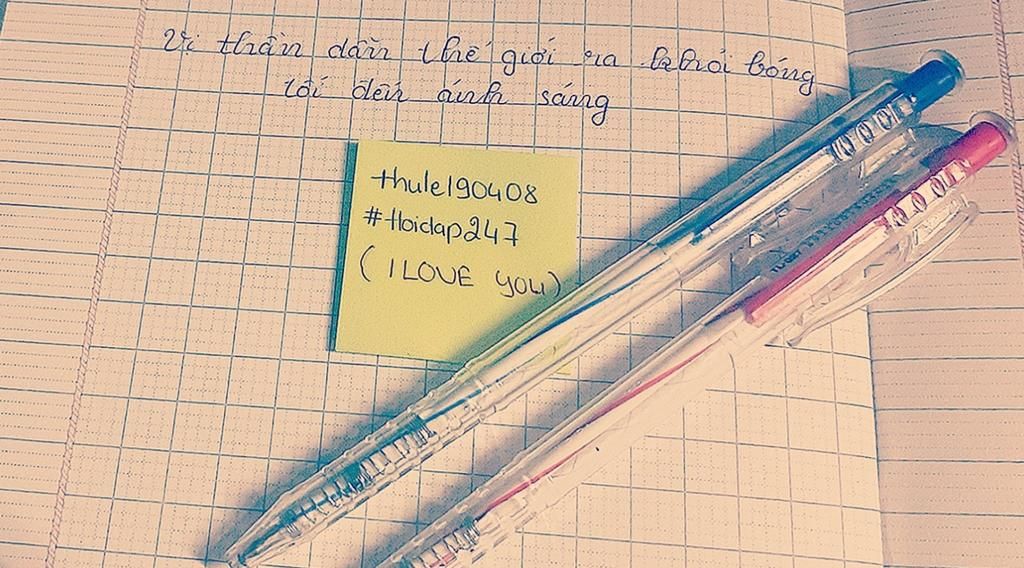 Vị thần dẫn thế giới ra khỏi bóng
tối đến ánh sáng
thule190408
#Hoidap247
(I LOVE YOU)